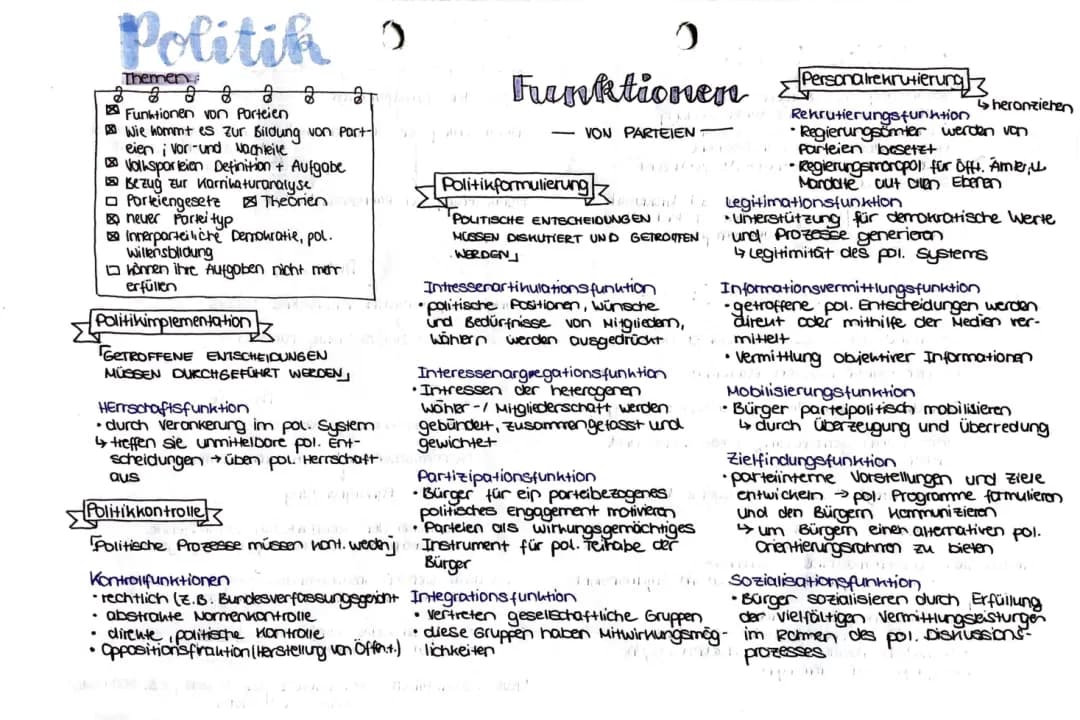 Politik
Themen:
☒ Funktionen von Parteien
☒ Wie kommt es zur Bildung von Part-
eien; Vor- und Nachteile
☒ Volksparteien Definition + Aufgabe
☒ Bezug zur Karrikaturanalyse
☐ Parteiengesetze ☒ Theorien
☒ neuer Parteityp
☒ Innerparteiliche Demokratie, pol.
Willensbildung
☐ können ihre Aufgaben nicht mehr
erfüllen
Politikimplementation
"GETROFFENE ENTSCHEIDUNGEN
MÜSSEN DURCHGEFÜHRT WERDEN"
Herrschaftsfunktion
• durch Verankerung im pol. System
↳ treffen sie unmittelbare pol. Ent-
scheidungen → üben pol. Herrschaft
aus
Politikkontrolle
"Politische Prozesse müssen kont. werdn"
Kontrollfunktionen
• rechtlich (z.B. Bundesverfassungsgericht
• abstrakte Normenkontrolle
• direkte, politische Kontrolle
• Oppositionsfraktion (Herstellung von Öffent.)
Funktionen
— VON PARTEIEN —
Politikformulierung
"POLITISCHE ENTSCHEIDUNGEN
MÜSSEN DISKUTIERT UND GETROFFEN
WERDEN"
Intressenartikulationsfunktion
• politische Positionen, Wünsche
und Bedürfnisse von Mitgliedern,
Wählern werden ausgedrückt
Interessenargregationsfunktion
• Intressen der heterogenen
Wähler-/ Mitgliederschaft werden
gebündelt, zusammengefasst und
gewichtet
Partizipationsfunktion
• Bürger für ein parteibezogenes
politisches Engagement motivieren
• Parteien als wirkungsgemächtiges
Instrument für pol. Teilhabe der
Bürger
Integrationsfunktion
• Vertreten gesellschaftliche Gruppen
• diese Gruppen haben Mitwirkungsmög-
lichkeiten
Personalrekrutierung
↳ heranziehen
Rekrutierungsfunktion
• Regierungsämter werden von
Parteien besetzt
• Regierungsmonopol für öff. Ämter, u.
Mandate auf allen Ebenen
Legitimationsfunktion
• Unterstützung für demokratische Werte
und Prozesse generieren
↳ Legitimität des pol. Systems
Informationsvermittlungsfunktion
• getroffene pol. Entscheidungen werden
direkt oder mithilfe der Medien ver-
mittelt
• Vermittlung objektiver Informationen
Mobilisierungsfunktion
• Bürger parteipolitisch mobilisieren
↳ durch Überzeugung und Überredung
Zielfindungsfunktion
• parteiinterne Vorstellungen und Ziele
entwickeln → pol. Programme formulieren
und den Bürgern kommunizieren
↳ um Bürgern einen alternativen pol.
Orientierungsrahmen zu bieten
Sozialisationsfunktion
• Bürger sozialisieren durch Erfüllung
der vielfältigen Vermittlungsleistungen
im Rahmen des pol. Diskussions-
prozesses